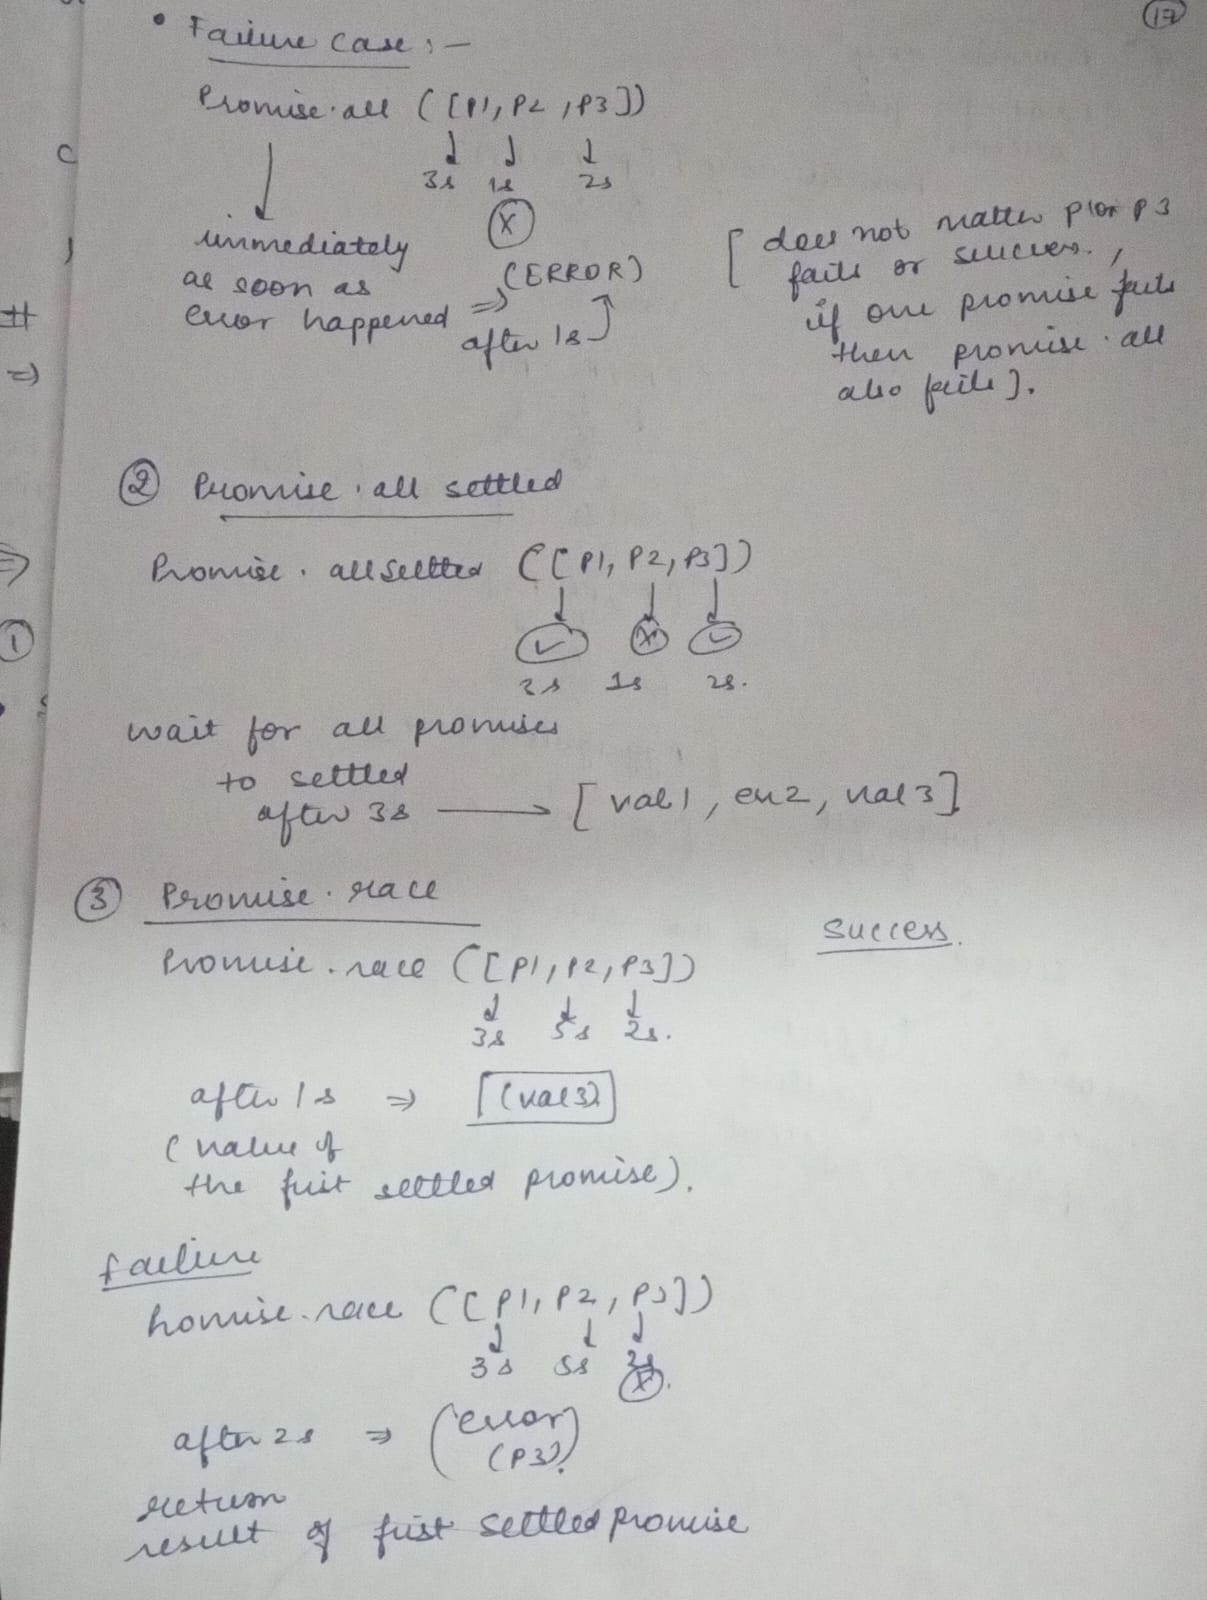 17
• Failure case :-
Promise.all ([P1, P2, P3])
3s 1s 2s
X
immediately
as soon as
error happened => after 1s
(ERROR)
[ does not matter P1 or P3
fails or success.,
if one promise fails
then promise.all
also fails ].
② Promise. all settled
Promise. allsettled ([P1, P2, P3])
✓ X ✓
3s 1s 2s.
wait for all promises
to settled
after 3s → [val1, err2, val3]
③ Promise. race
success.
Promise. race ([P1, P2, P3])
3s 5s 2s.
after 1s => [(val3)]
(value of
the first settled promise).
failure
Promise. race ([P1, P2, P3])
3s 5s 2s
X.
after 2s => (error)
(P3).
return
result of first settled promise
#
=>
=>
①